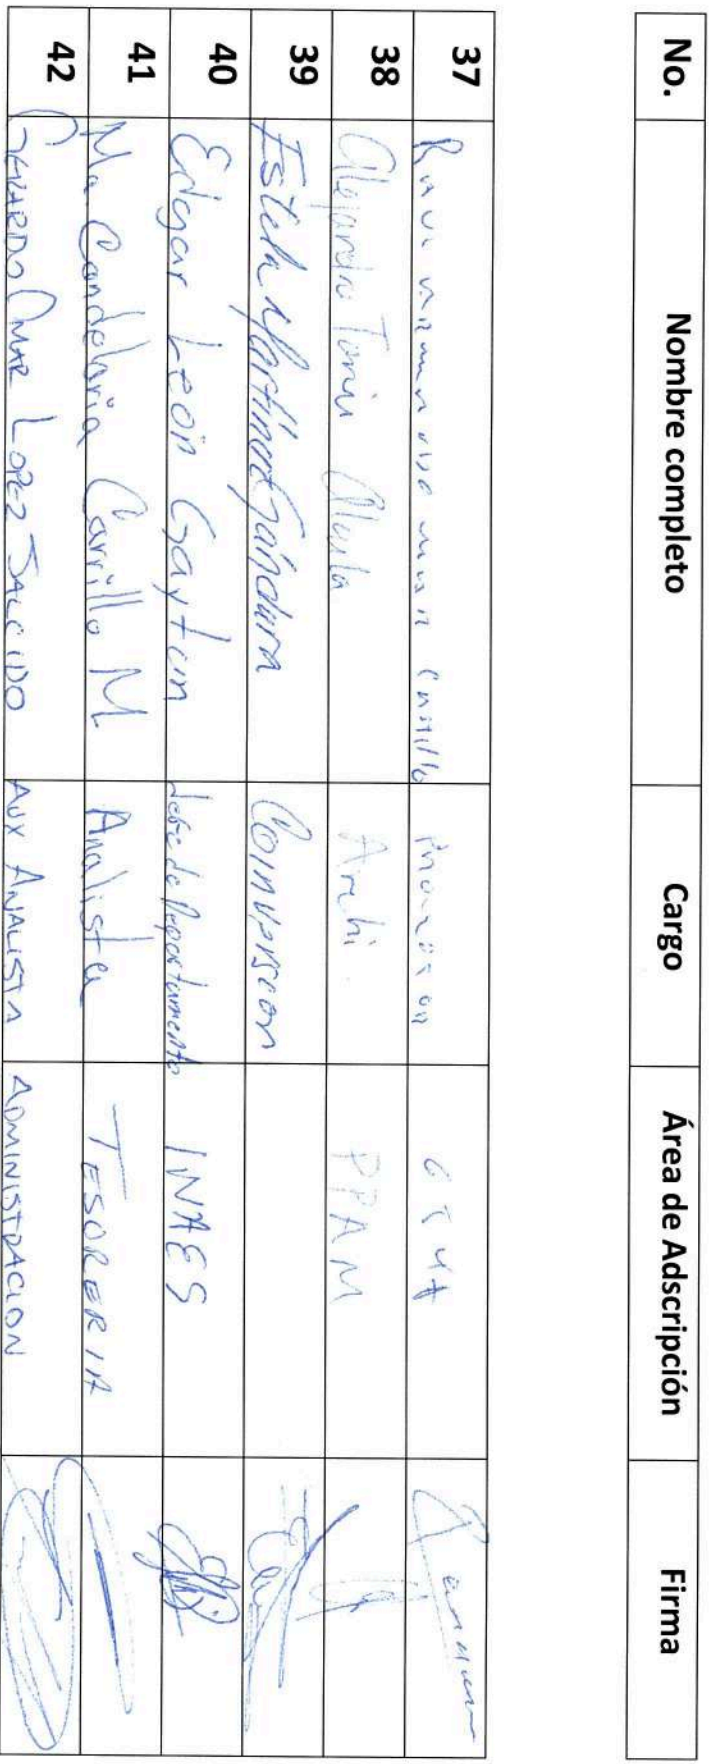 No. Nombre completo Cargo Área de Adscripción Firma
37 Castillo
38 Alejandro PPAM
39 Estela Martinez Gándara Coinversion
40 Edgar León Gaytan Jefe de Departamento INAES
41 Ma Candelaria Carrillo M Analista TESORERIA
42 GERARDO OMAR LOPEZ SALCIDO AUX ANALISTA ADMINISTRACION